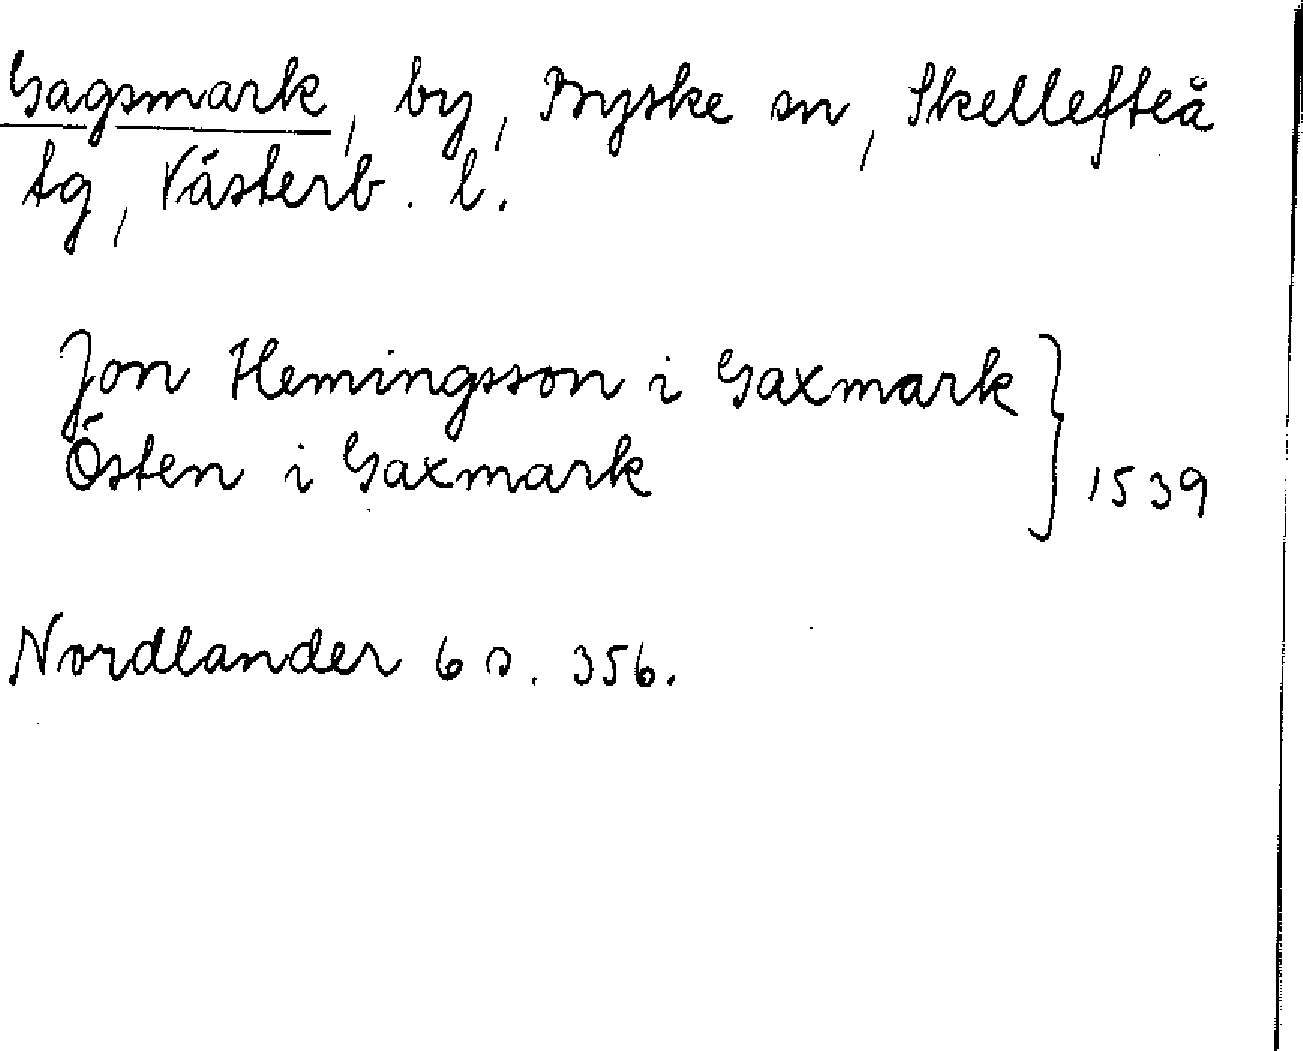 Gagsmark, by, Byske sn, Skellefteå
tg, Västerb. l.
Jon Hemingsson i Gaxmark
Östen i Gaxmark } 1539
Nordlander 6 s. 356.